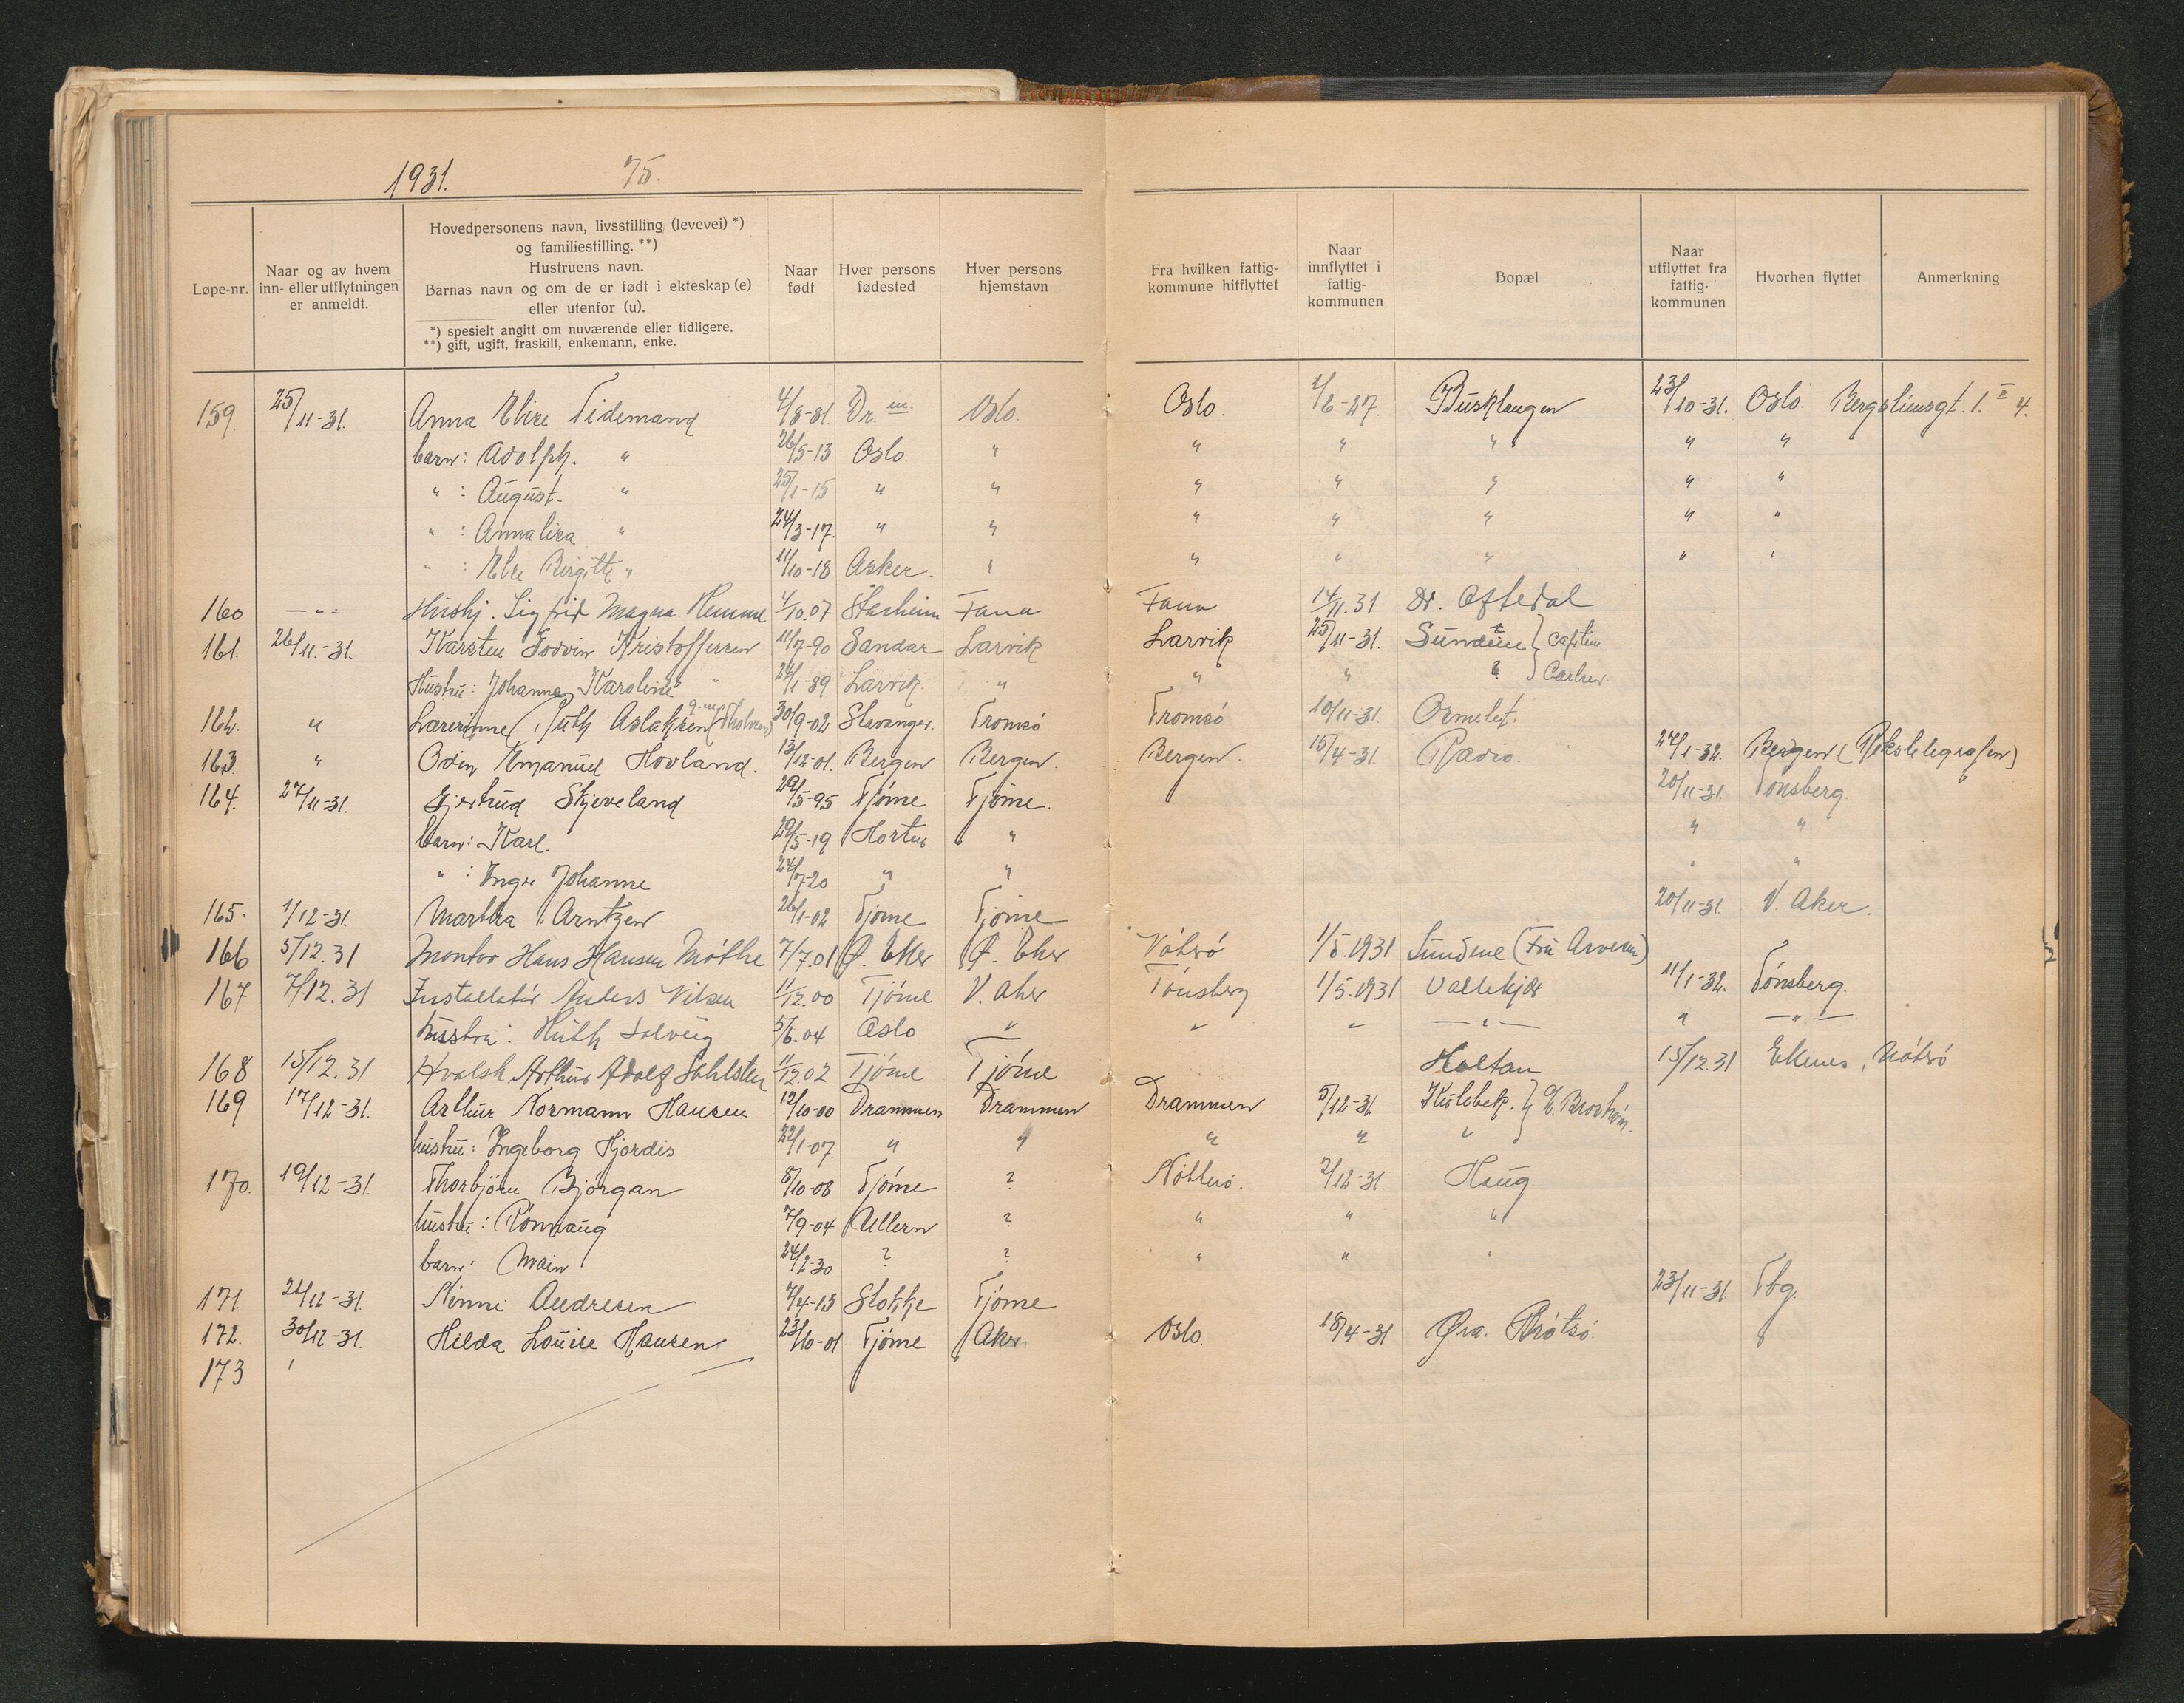 1931. 75.
Løpe-nr.
Naar og av hvem
inn- eller utflytningen
er anmeldt.
Hovedpersonens navn, livsstilling (levevei) *)
og familiestilling. **)
Hustruens navn.
Barnas navn og om de er født i ekteskap (e)
eller utenfor (u).
*) spesielt angitt om nuværende eller tidligere.
**) gift, ugift, fraskilt, enkemann, enke.
Naar
født
Hver persons
fødested
Hver persons
hjemstavn
Fra hvilken fattig-
kommune hitflyttet
Naar
innflyttet i
fattig-
kommunen
Bopæl
Naar
utflyttet fra
fattig-
kommunen
Hvorhen flyttet
Anmerkning
159. 25/11-31. Anna Elise Tidemand 4/8-81. Dr.m. Oslo. Oslo. 1/6-27. Busklangen 23/10-31. Oslo. Bergsliensgt. 1. II 4.
barn: Adolph. " 26/5-13 Oslo. " " " " " "
" : August. " 25/1-15 " " " " " " "
" : Annalisa " 24/3-17. " " " " " " "
" : Else Birgitte " 11/10-18 Asker. " " " " " "
160 -"- Hushj. Sigfrid Magna Hemme 4/10.07 Fana Fana 14/11.31 Dr. Oftedal
161. 26/11.-31. Karsten Godvin Kristoffersen 11/7-90 Sandar Larvik Larvik 25/11-31. Sundene } Captein
Hustru: Johanne Karoline " 24/1-89 Larvik. " " " " } Carlsen.
162. " Lærerinne Ruth Aslaksen 30/9-02 Stavanger. Tromsö Tromsö 10/11-31. Ormelet.
163 " Odin Emanuel Hovland. 13/12-01. Bergen Bergen. Bergen. 15/4-31. Radio. 24/1-32. Bergen (Rikstelegrafen)
164. 27/11-31. Gjertrud Skjeveland 29/5-95 Tjöme Tjöme. 20/11-31. Tönsberg.
barn: Karl. 29/5-19 Horten " " "
" : Inger Johanne 24/7-20 " " " "
165. 1/12-31. Martha Arntzen 26/1-02 Tjöme Tjöme 20/11-31. V. Aker.
166 5/12.31 Montör Hans Hansen Möthe 7/7.01 Ø. Eker Ø. Eker Nötterö 1/5.1931 Sundene (Fru Arvesen)
167 7/12.31 Installatör Anders Nilsen 11/12.00 Tjöme V. Aker Tönsberg 1/5.1931 Vallekjær 11/1-32. Tönsberg.
hustru: Ruth Solveig 5/6.04 Oslo " " " -"- " -"-
168 15/12.31 Hvalsk. Arthur Adolf Dahlsten 11/12.02 Tjöme Tjöme Holtan 15/12.31 Ekenes, Nötterö
169 17/12-31. Arthur Normann Hansen 12/10-00 Drammen Drammen Drammen 5/12-31 Kulebek. } G. Broström.
hustru: Ingeborg Hjördis 22/1-07. " " " " "
170. 19/12-31. Thorbjörn Björgan 8/10-08 Tjöme ? Nötterö. 2/12-31. Haug
hustru: Rönnaug 7/9-04 Ullern ? " " "
barn: Main 24/2-30 ? ? " " "
171. 21/12-31. Ninni Andresen 7/4-13 Stokke Tjöme 23/11-31. Tbg.
172. 30/12-31. Hilda Louise Hansen 23/10-01 Tjöme Aker. Oslo. 18/4-31 Øra. Brötsö.
173